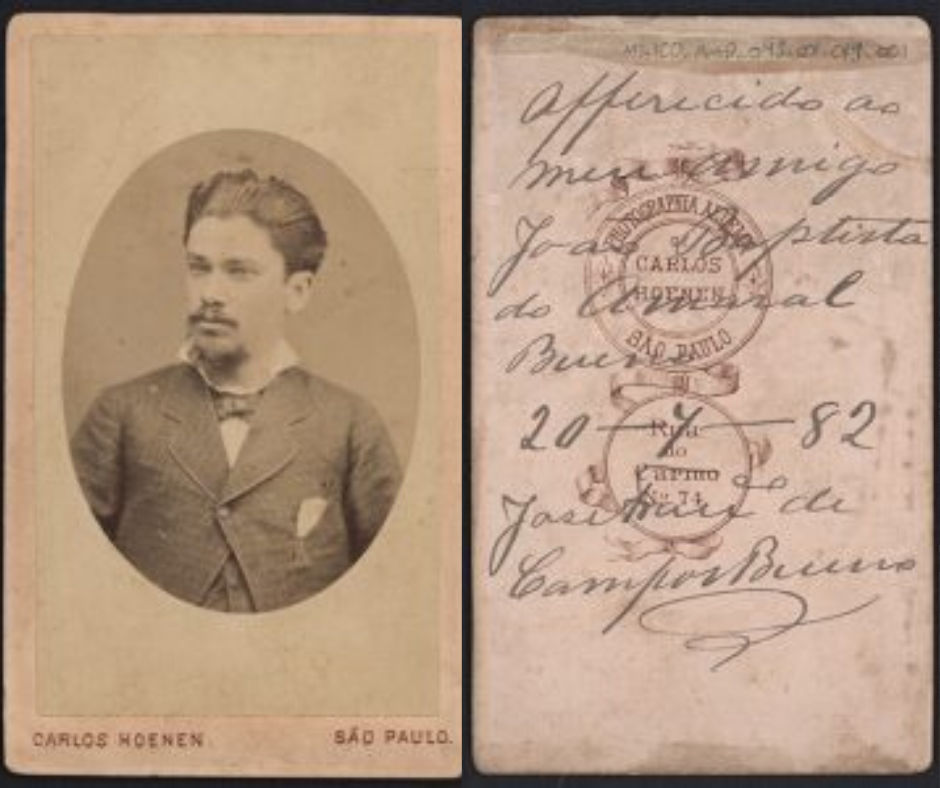 CARLOS HOENEN.
SÃO PAULO.
Offerecido ao
meu amigo
João Baptista
do Amaral
Bueno
20 — 7 — 82
José de
Campos Bueno
PHOTOGRAPHIA
CARLOS
HOENEN
SÃO PAULO
Rua
do
Carmo
No 74